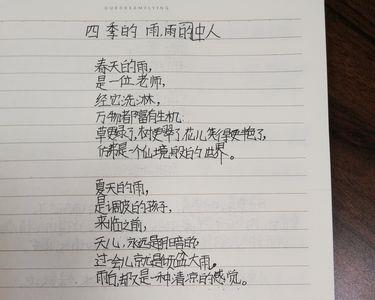 OURDREAMFLYING
四季的雨,雨中人
春天的雨,
是一位老师,
经它洗淋,
万物都富有生机:
草更绿了,树更翠了,花儿笑得更艳了,
仿佛是一个仙境般的世界。
夏天的雨,
是调皮的孩子,
来临之前,
天儿,永远是阴暗的
过一会儿就是倾盆大雨。
雨,却又是一种清凉的感觉。